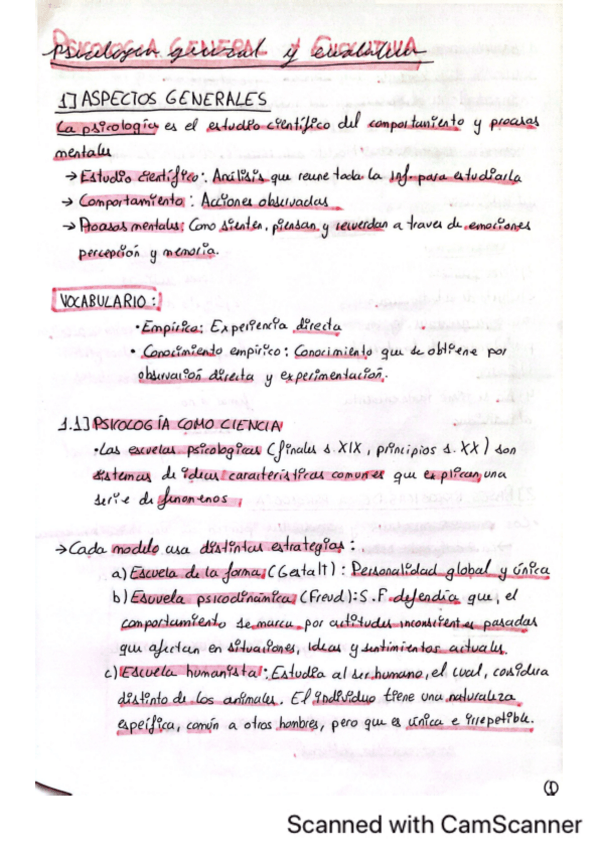 Psicología general y evolutiva
1] ASPECTOS GENERALES
La psicología es el estudio científico del comportamiento y procesos
mentales
→ Estudio científico: Análisis que reune toda la inf. para estudiarla
→ Comportamiento: Acciones observadas
→ Procesos mentales: Como sienten, piensan y recuerdan a traves de emociones
percepción y memoria.
VOCABULARIO:
· Empírica: Experiencia directa
· Conocimiento empírico: Conocimiento que se obtiene por
observación directa y experimentación.
1.1] PSICOLOGÍA COMO CIENCIA
· Las escuelas psicologicas (finales s. XIX, principios s. XX) son
sistemas de ideas características comunes que explican una
serie de fenomenos.
→ Cada modelo usa distintas estrategias:
a) Escuela de la forma (Gestalt): Personalidad global y única
b) Escuela psicodinámica (Freud): S.F. defendia que, el
comportamiento se marca por actitudes inconscientes pasadas
que afectan en situaciones, ideas y sentimientos actuales.
c) Escuela humanista: Estudia al ser humano, el cual, cosidera
distinto de los animales. El individuo tiene una naturaleza
espeífica, común a otros hombres, pero que es única e irrepetible.
1
Scanned with CamScanner